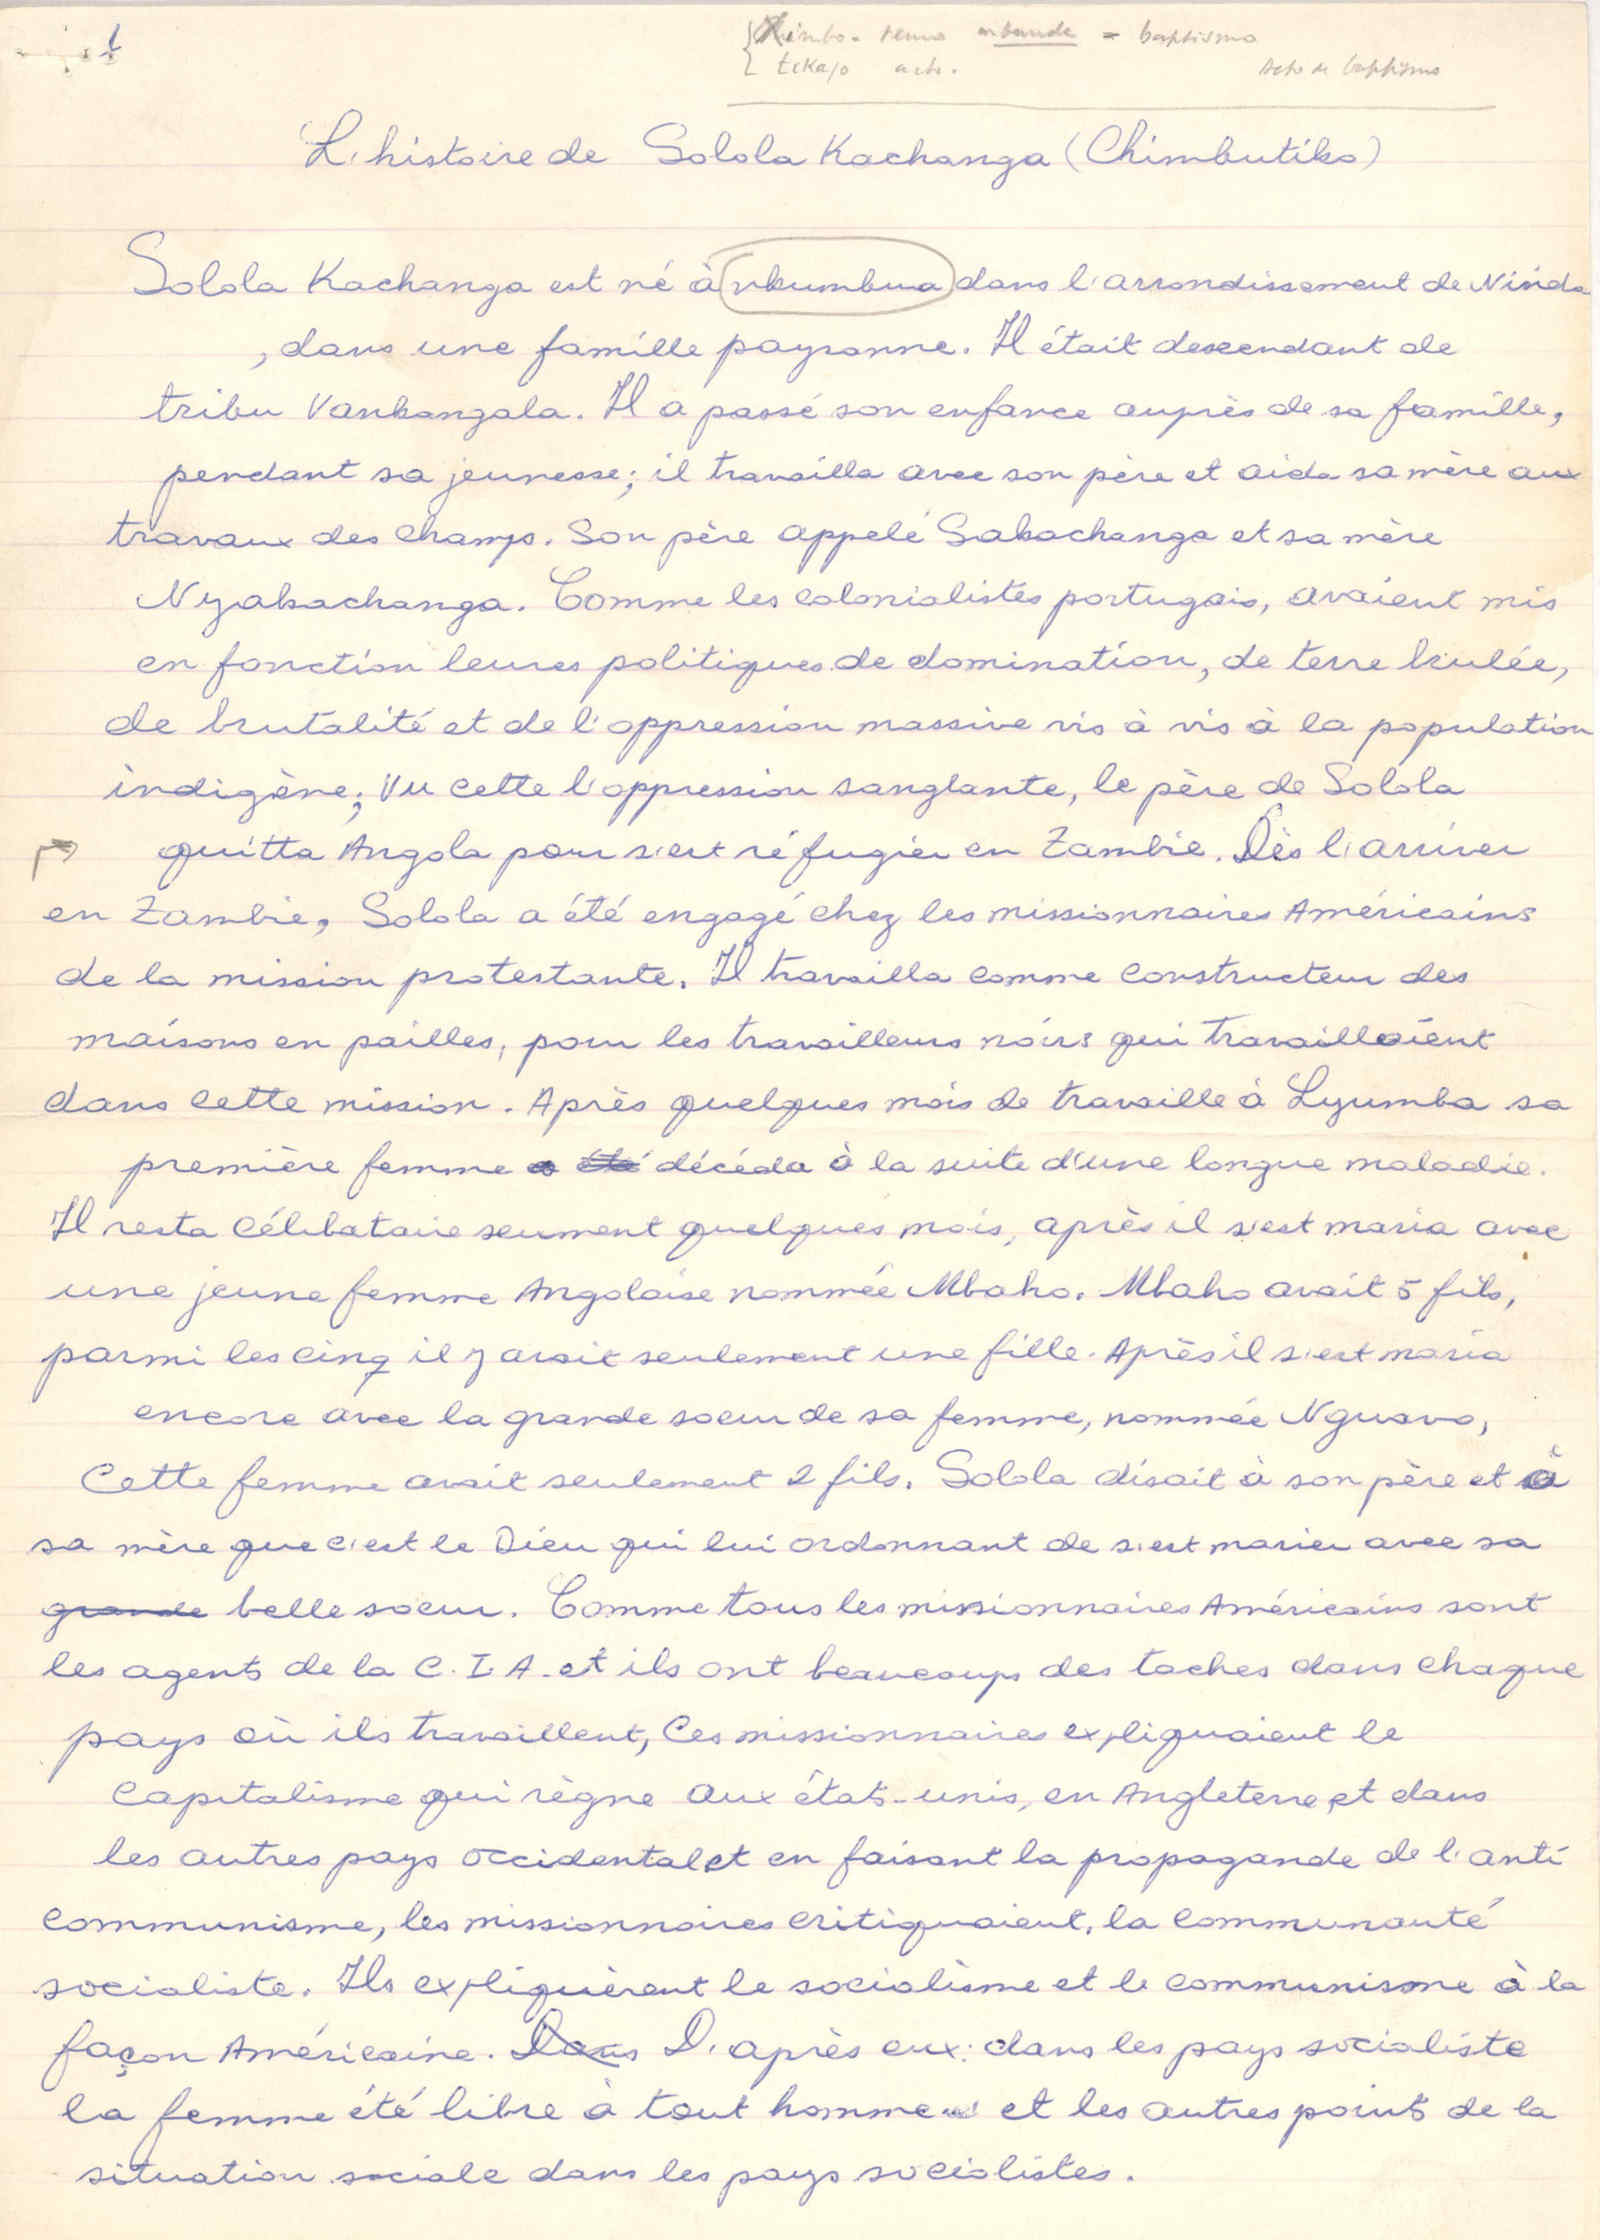 1
Chimbo. termo mbunda = baptismo
tekajo acto. Acto de baptismo
L'histoire de Solola Kachanga (Chimbutiko)
Solola Kachanga est né à nkumbua dans l'arrondissement de Ninda
, dans une famille paysanne. Il était descendant de
tribu Vankangala. Il a passé son enfance auprès de sa famille,
pendant sa jeunesse; il travailla avec son père et aida sa mère aux
travaux des champs. Son père appelé Sakachanga et sa mère
Nyakachanga. Comme les colonialistes portugais, avaient mis
en fonction leures politiques de domination, de terre brulée,
de brutalité et de l'oppression massive vis à vis à la population
indigène; Vu cette l'oppression sanglante, le père de Solola
quitta Angola pour s'est réfugier en Zambie. Dès l'arriver
en Zambie, Solola a été engagé chez les missionnaires Américains
de la mission protestante. Il travailla comme constructeur des
maisons en pailles, pour les travailleurs noirs qui travaillaient
dans cette mission. Après quelques mois de travaille à Lyumba sa
première femme a été décéda à la suite d'une longue maladie.
Il resta célibataire seument quelques mois, après il s'est maria avec
une jeune femme Angolaise nommée Mbaho. Mbaho avait 5 fils,
parmi les cinq il y avait seulement une fille. Après il s'est maria
encore avec la grande soeur de sa femme, nommée Nguavo,
Cette femme avait seulement 2 fils. Solola disait à son père et à
sa mère que c'est le Dieu qui lui ordonnant de s'est marier avec sa
grande belle soeur. Comme tous les missionnaires Américains sont
les agents de la C.I.A. et ils ont beaucoups des taches dans chaque
pays où ils travaillent, Ces missionnaires expliquaient le
capitalisme qui règne aux états-unis, en Angleterre et dans
les autres pays occidental et en faisant la propagande de l'anti
communisme, les missionnaires critiquaient, la communauté
socialiste. Ils expliquèrent le socialisme et le communisme à la
façon Américaine. Dans D'après eux: dans les pays socialiste
la femme été libre à tout homme et les autres points de la
situation sociale dans les pays socialistes.